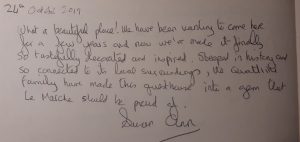 24th October 2019
What a beautiful place! We have been wanting to come here
for a few years and now we've made it finally
So tastefully decorated and inspired. Steeped in history and
so connected to its local surroundings, the
family have made this guesthouse into a gem that
Le Marche should be proud of.
Susan